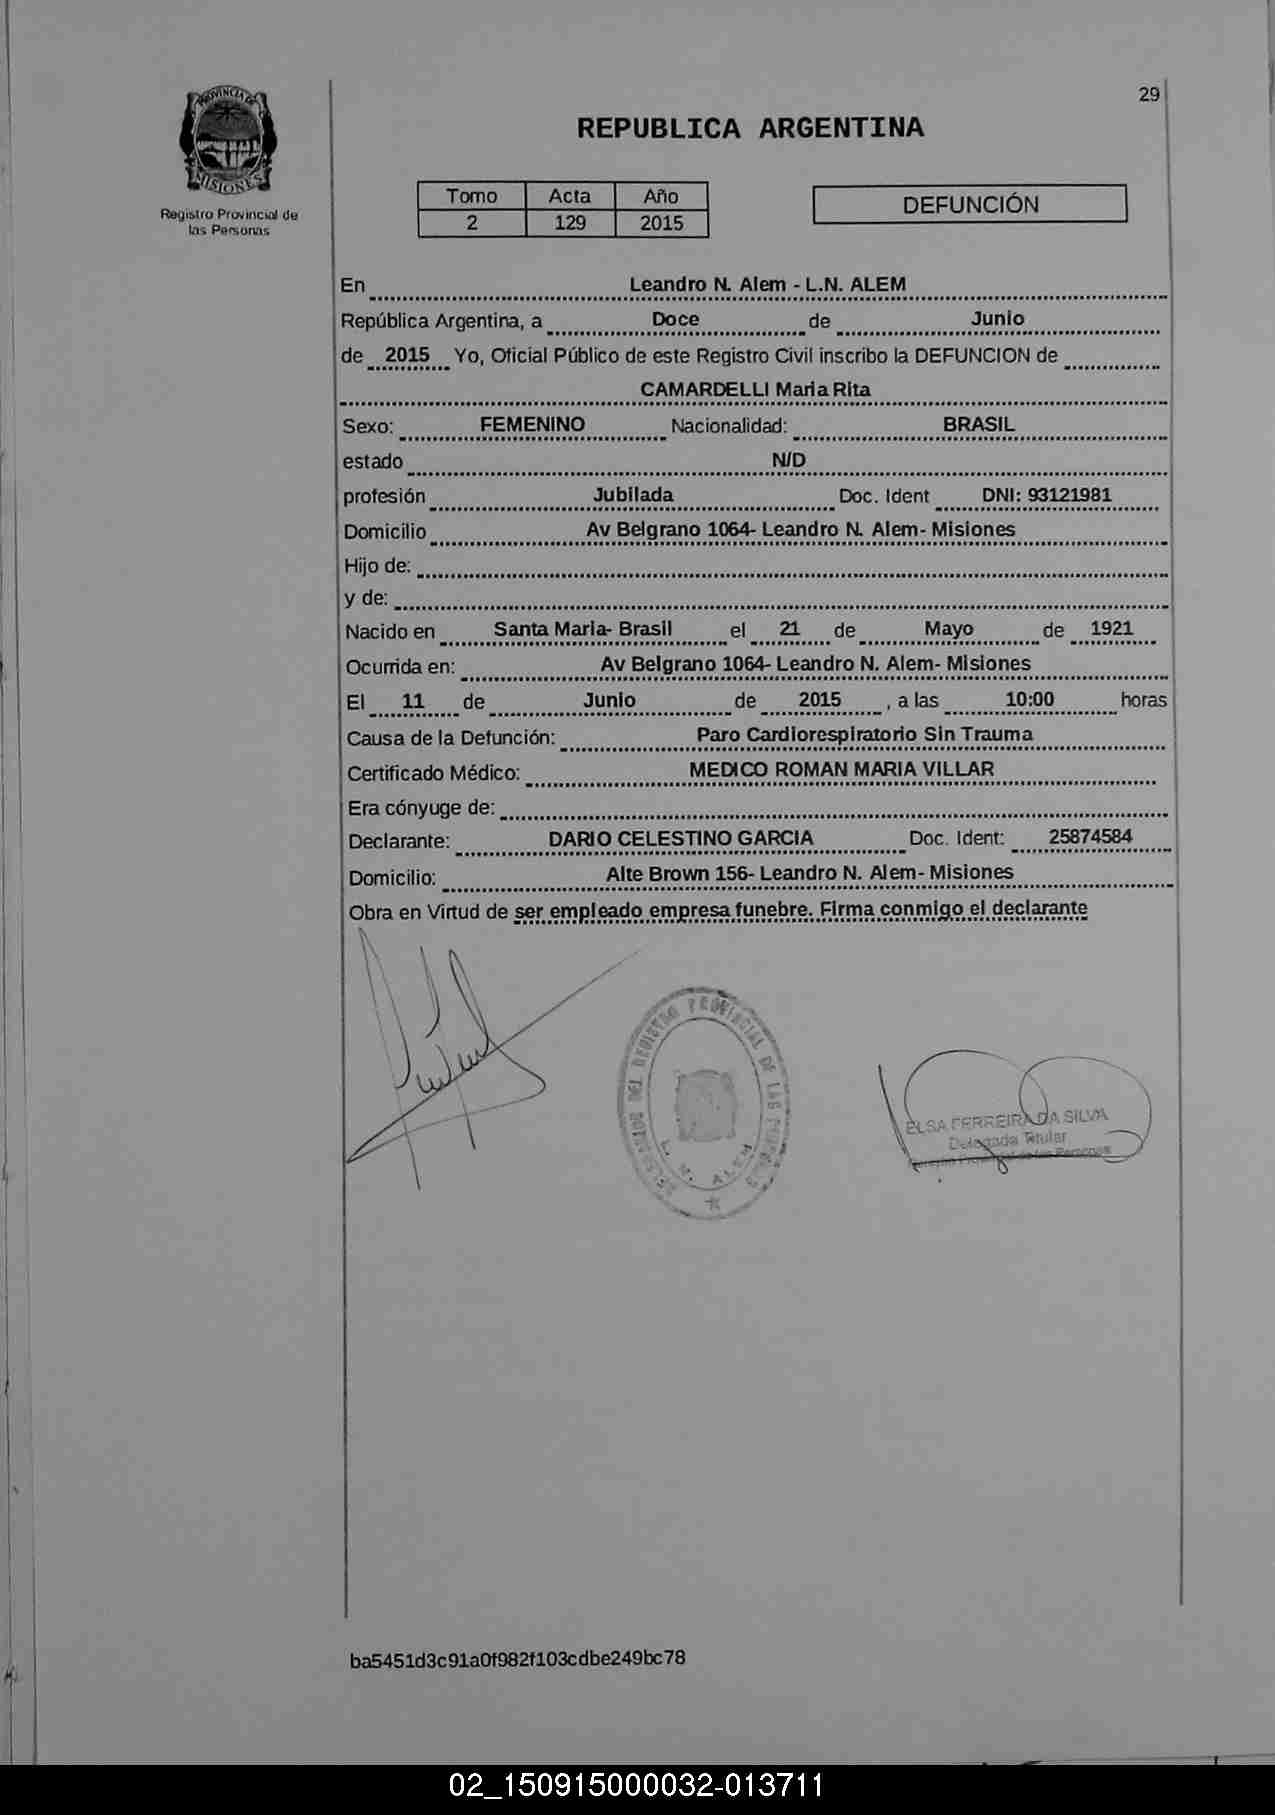 29
PROVINCIA DE
MISIONES
Registro Provincial de
las Personas
REPUBLICA ARGENTINA
Tomo Acta Año
2 129 2015
DEFUNCIÓN
En Leandro N. Alem - L.N. ALEM
República Argentina, a Doce de Junio
de 2015 Yo, Oficial Público de este Registro Civil inscribo la DEFUNCION de
CAMARDELLI Maria Rita
Sexo: FEMENINO Nacionalidad: BRASIL
estado N/D
profesión Jubilada Doc. Ident DNI: 93121981
Domicilio Av Belgrano 1064- Leandro N. Alem- Misiones
Hijo de:
y de:
Nacido en Santa Maria- Brasil el 21 de Mayo de 1921
Ocurrida en: Av Belgrano 1064- Leandro N. Alem- Misiones
El 11 de Junio de 2015 , a las 10:00 horas
Causa de la Defunción: Paro Cardiorespiratorio Sin Trauma
Certificado Médico: MEDICO ROMAN MARIA VILLAR
Era cónyuge de:
Declarante: DARIO CELESTINO GARCIA Doc. Ident: 25874584
Domicilio: Alte Brown 156- Leandro N. Alem- Misiones
Obra en Virtud de ser empleado empresa funebre. Firma conmigo el declarante
DEL REGISTRO PROVINCIAL DE LAS
L. N. ALEM
ELSA FERREIRA DA SILVA
Delegada Titular
de las Personas
ba5451d3c91a0f982f103cdbe249bc78
02_150915000032-013711